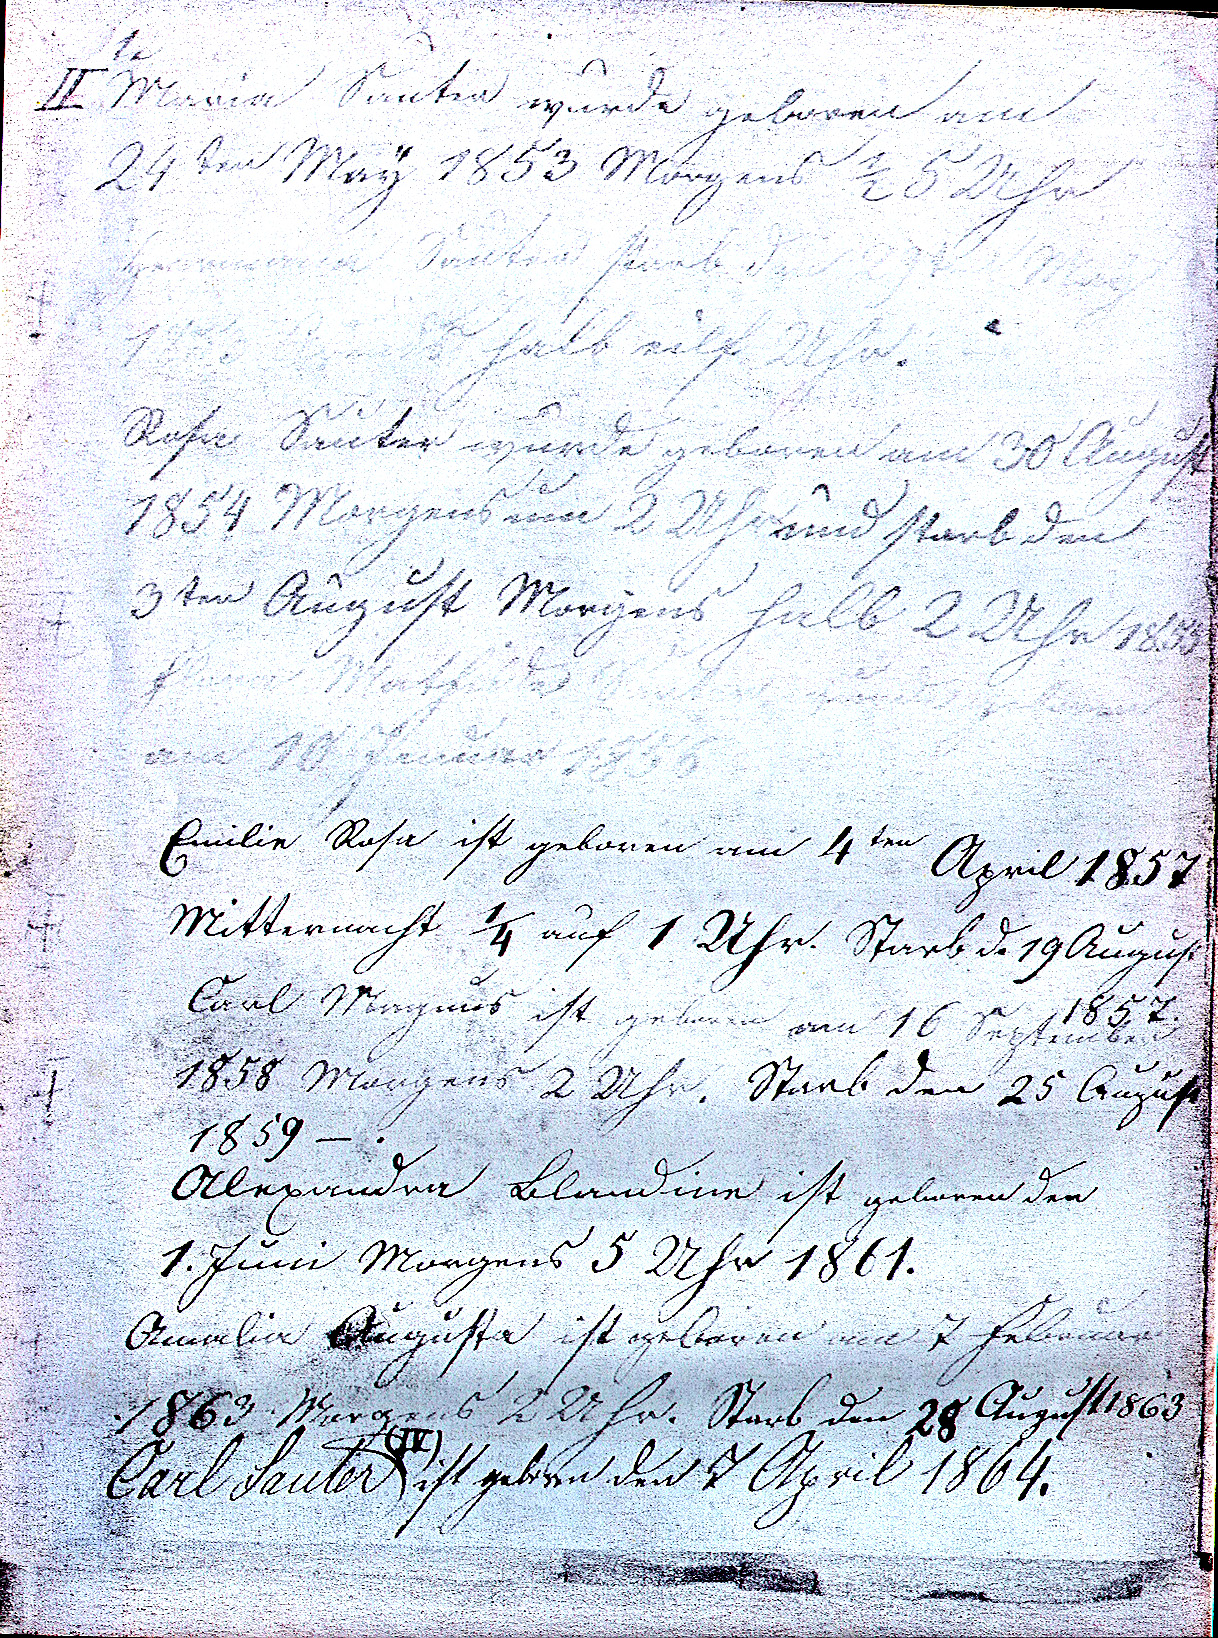 1.
II Maria Sauter wurde geboren am
24 ten Maÿ 1853 Morgens ½ 5 Uhr
Sauter starb den 29ten Maÿ
halb eilf Uhr.
Rosa Sauter wurde geboren am 30 August
1854 Morgens um 2 Uhr und starb den
3 ten August Morgens halb 2 Uhr 1855
Mathilde wurde geboren
am 10 Januar 1856
Emilie Rosa ist geboren am 4 ten April 1857
Mitternacht ¼ auf 1 Uhr. Starb d. 19 August
1857.
Carl Magnus ist geboren am 16 September
1858 Morgens 2 Uhr. Starb den 25 August
1859 — .
Alexandra Blandine ist geboren den
1. Juni Morgens 5 Uhr 1861.
Amalia Augusta ist geboren am 7 Februar
1863 Morgens 2 Uhr. Starb den 28 August 1863
Carl Sauter (IV) ist geboren den 7 April 1864.